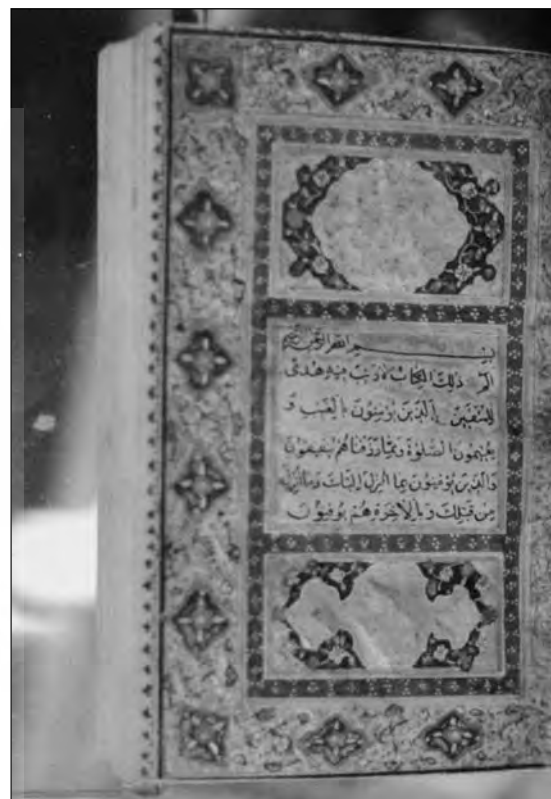 بِسْمِ اللهِ الرَّحْمٰنِ الرَّحِيْمِ
الم ذٰلِكَ الْكِتَابُ لَا رَيْبَ فِيْهِ هُدًى
لِلْمُتَّقِيْنَ الَّذِيْنَ يُؤْمِنُوْنَ بِالْغَيْبِ وَ
يُقِيْمُوْنَ الصَّلٰوةَ وَمِمَّا رَزَقْنَاهُمْ يُنْفِقُوْنَ
وَالَّذِيْنَ يُؤْمِنُوْنَ بِمَا اُنْزِلَ اِلَيْكَ وَمَا اُنْزِلَ
مِنْ قَبْلِكَ وَبِالْاٰخِرَةِ هُمْ يُوْقِنُوْنَ